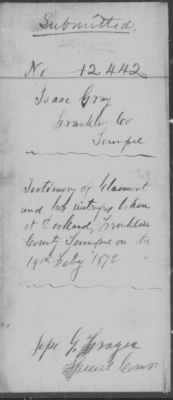 Submitted.
No 12.442
Isaac Gray
Franklin Co
Tennessee
Testimony of Claimant
and his witnesses taken
at Deckerd, Franklin
County Tennessee on the
19th Feby 1872
Special Comr